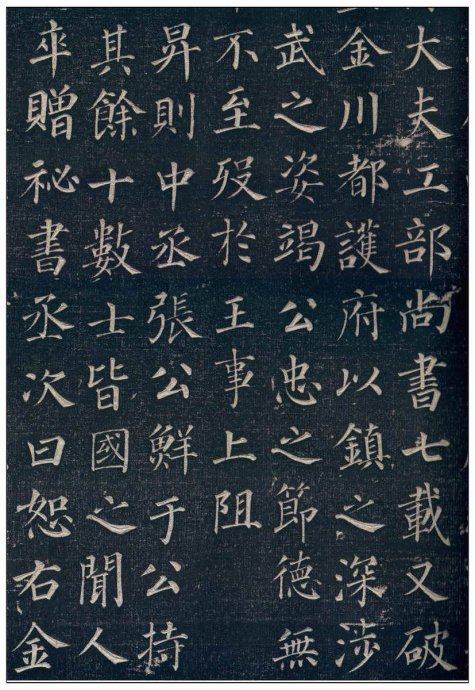 大夫工部尚書七載又破
金川都護府以鎮之深涉
武之姿竭公忠之節德無
不至歿於王事上阻
昇則中丞張公鮮于公持
其餘十數士皆國之聞人
卒贈祕書丞次曰恕右金